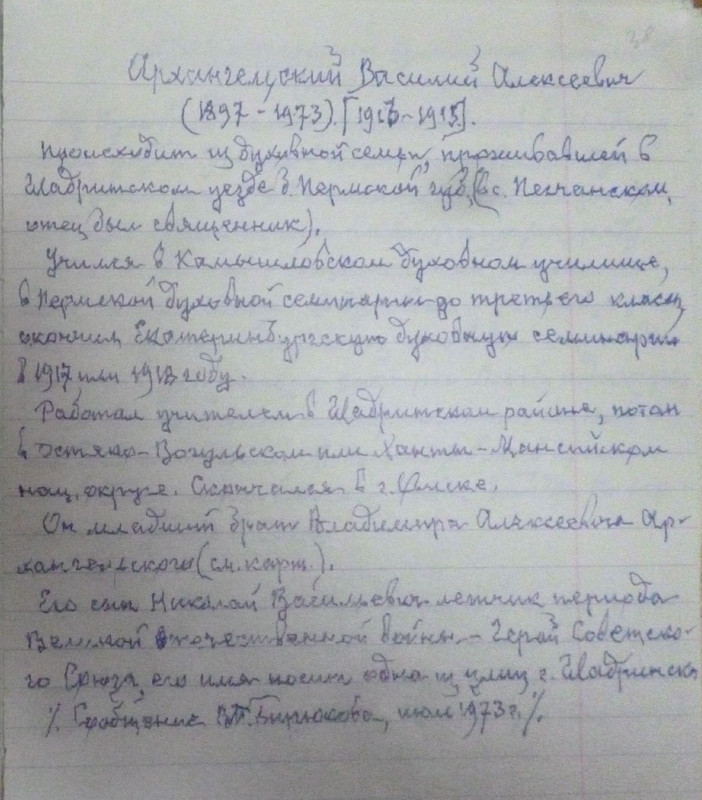 38
Архангельский Василий Алексеевич
(1897-1973). [1913-1915].
Происходит из духовной семьи, проживавшей в
Шадринском уезде б. Пермской губ., (в с. Песчанском,
отец был священник).
Учился в Камышловском духовном училище,
в Пермской духовной семинарии до третьего класса,
окончил Екатеринбургскую духовную семинарию
в 1917 или 1918 году.
Работал учителем в Шадринском районе, потом
в Остяко-Вогульском или Ханты-Мансийском
нац. округе. Скончался в г. Омске.
Он младший брат Владимира Алексеевича Ар-
хангельского (см. карт.).
Его сын Николай Васильевич летчик периода
Великой Отечественной войны – Герой Советско-
го Союза, его имя носит одна из улиц г. Шадринска
% Сообщение В.П. Бирюкова, июль 1973 г. %